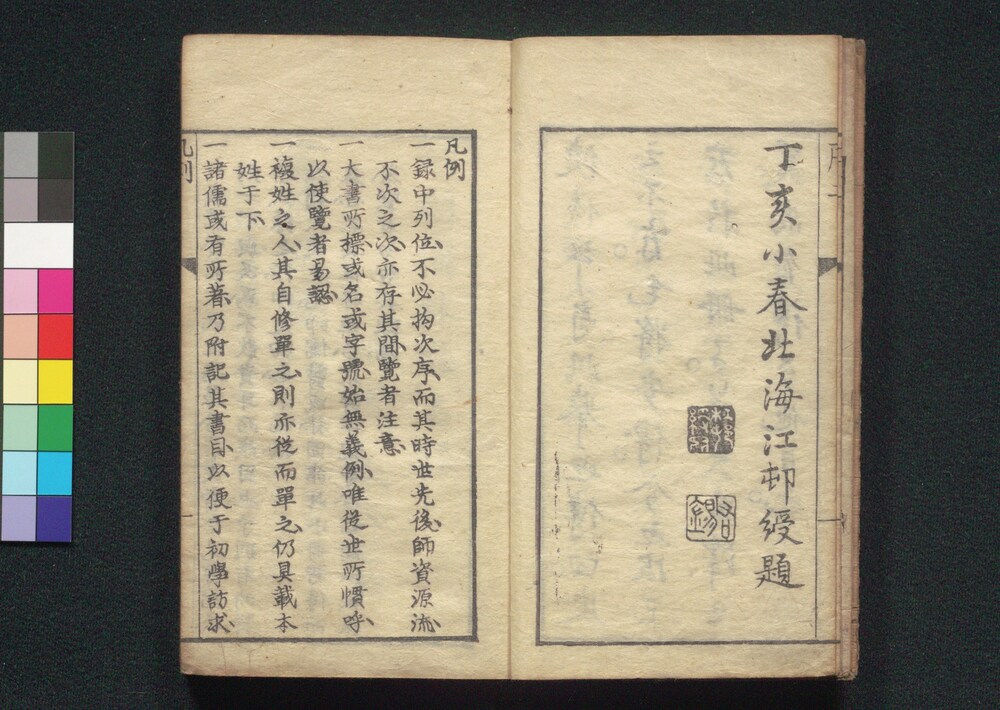 丁亥小春北海江邨綬題
凡例
一錄中列位不必拘次序而其時世先後師資源流
不次之次亦存其間覽者注意
一大書所標或名或字號始無義例唯從世所慣呼
以使覽者易認
一複姓之人其自修單之則亦從而單之仍具載本
姓于下
一諸儒或有所著乃附記其書目以便于初學訪求
凡例